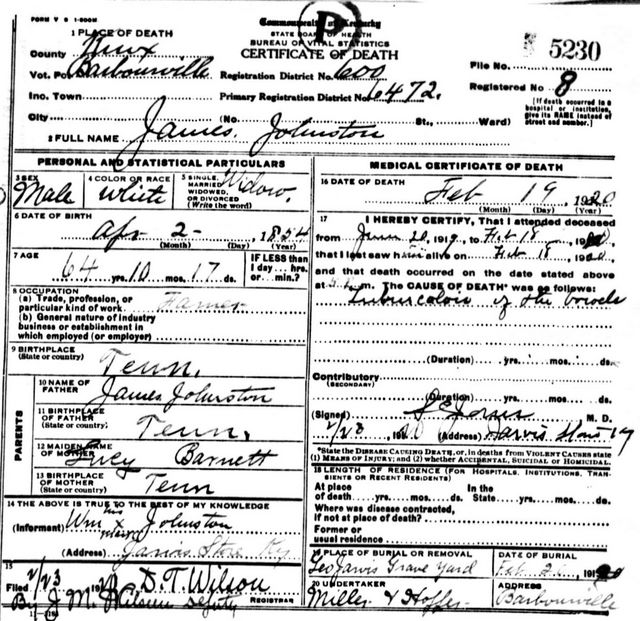 FORM V S 1-500M
Commonwealth of Kentucky
STATE BOARD OF HEALTH
BUREAU OF VITAL STATISTICS
CERTIFICATE OF DEATH
P
5230
1 PLACE OF DEATH
County Knox
Vot. Pct Barbourville
Registration District No. 609
File No.
Inc. Town
Primary Registration District No. 6472.
Registered No. 8
City (No. St., Ward)
[If death occurred in a hospital or institution, give its NAME instead of street and number.]
2 FULL NAME James Johnston
PERSONAL AND STATISTICAL PARTICULARS
3 SEX Male
4 COLOR OR RACE White
5 SINGLE, MARRIED, WIDOWED, OR DIVORCED (Write the word) Widow.
6 DATE OF BIRTH
Apr 2 - 1854
(Month) (Day) (Year)
7 AGE
64 yrs. 10 mos. 17 ds.
IF LESS than 1 day... hrs. or... min.?
8 OCCUPATION
(a) Trade, profession, or particular kind of work Farmer
(b) General nature of industry business or establishment in which employed (or employer)
9 BIRTHPLACE (State or country) Tenn.
PARENTS
10 NAME OF FATHER James Johnston
11 BIRTHPLACE OF FATHER (State or country) Tenn.
12 MAIDEN NAME OF MOTHER Lucy Barnett
13 BIRTHPLACE OF MOTHER (State or country) Tenn
14 THE ABOVE IS TRUE TO THE BEST OF MY KNOWLEDGE
(Informant) Wm his x mark Johnston
(Address) Jarvis Store Ky
15
Filed 2/23 19 D. T. Wilson
REGISTRAR
By J M Wilson Deputy
MEDICAL CERTIFICATE OF DEATH
16 DATE OF DEATH
Feb 19 1920
(Month) (Day) (Year)
17 I HEREBY CERTIFY, That I attended deceased
from June 20, 1919, to Feb 18 1920
that I last saw him alive on Feb 18 1920,
and that death occurred on the date stated above
at m. The CAUSE OF DEATH* was as follows:
Tuberculosis of the bowels
(Duration) yrs. mos. ds.
Contributory
(SECONDARY)
(Duration) yrs. mos. ds.
(Signed) M. D.
2/23 1920 (Address) Jarvis Store Ky
*State the DISEASE CAUSING DEATH, or, in deaths from VIOLENT CAUSES state (1) MEANS OF INJURY; and (2) whether ACCIDENTAL, SUICIDAL or HOMICIDAL.
18 LENGTH OF RESIDENCE (FOR HOSPITALS, INSTITUTIONS, TRANSIENTS OR RECENT RESIDENTS)
At place of death yrs. mos. ds. In the State yrs. mos. ds.
Where was disease contracted, if not at place of death?
Former or usual residence
PLACE OF BURIAL OR REMOVAL
Geo Jarvis Grave Yard
DATE OF BURIAL
Feb 19
20 UNDERTAKER
Miller & Hoffer
ADDRESS
Barbourville